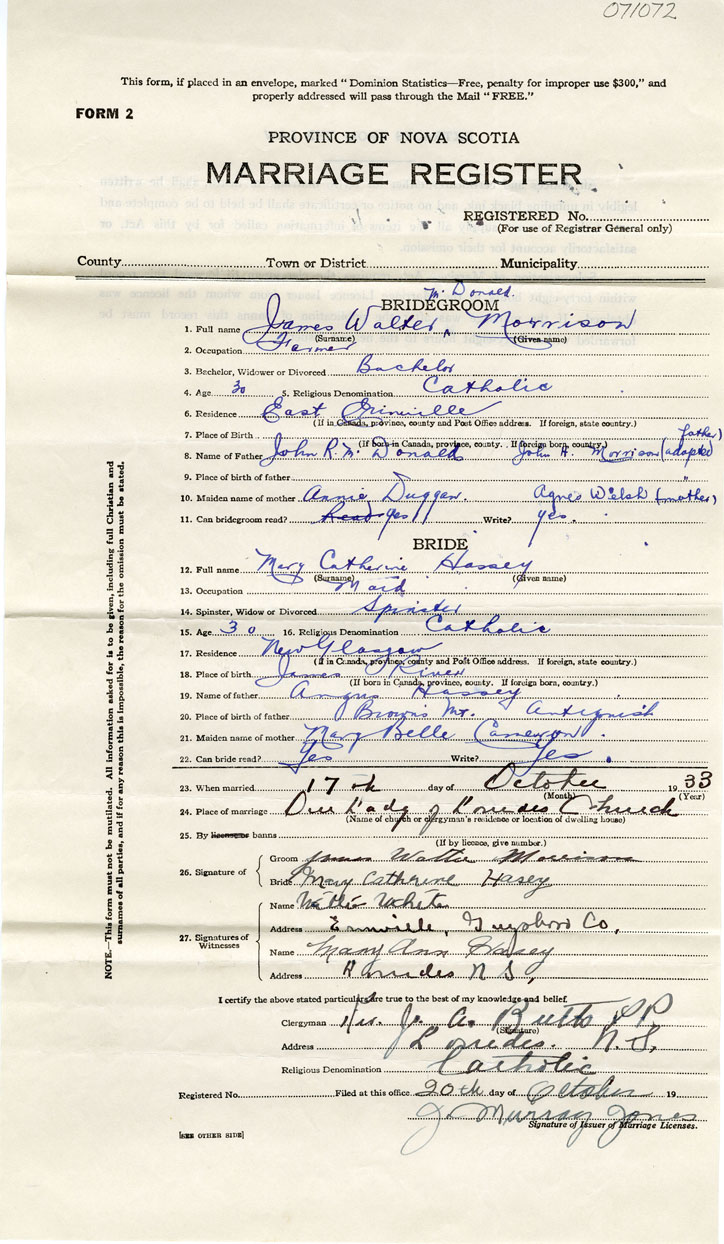 071072
This form, if placed in an envelope, marked “ Dominion Statistics—Free, penalty for improper use $300,” and
properly addressed will pass through the Mail “ FREE.”
FORM 2
PROVINCE OF NOVA SCOTIA
MARRIAGE REGISTER
REGISTERED No.
(For use of Registrar General only)
County Town or District Municipality
BRIDEGROOM
McDonald
1. Full name James Walter ^ Morrison
(Surname) (Given name)
2. Occupation Farmer
3. Bachelor, Widower or Divorced Bachelor
4. Age 30 5. Religious Denomination Catholic
6. Residence East Erinville
(If in Canada, province, county and Post Office address. If foreign, state country.)
7. Place of Birth
(If born in Canada, province, county. If foreign born, country.)
8. Name of Father John R. McDonald John H. Morrison (adopted father)
9. Place of birth of father "
10. Maiden name of mother Annie Duggan. Agnes Welsh (mother)
11. Can bridegroom read? Read yes Write? yes.
BRIDE
12. Full name Mary Catherine Hassey
(Surname) (Given name)
13. Occupation Maid
14. Spinster, Widow or Divorced Spinster
15. Age 30 16. Religious Denomination Catholic
17. Residence New Glasgow
(If in Canada, province, county and Post Office address. If foreign, state country.)
18. Place of birth James River
(If born in Canada, province, county. If foreign born, country.)
19. Name of father Angus Hassey
20. Place of birth of father Browns Mt. Antigonish
21. Maiden name of mother Mary Belle Cameron
22. Can bride read? Yes Write? Yes.
23. When married 17th day of October 1933
(Month) (Year)
24. Place of marriage Our Lady of Lourdes Church
(Name of church or clergyman's residence or location of dwelling house)
25. By license banns
(If by licence, give number.)
26. Signature of
Groom James Walter Morrison
Bride Mary Catherine Hasey
27. Signatures of Witnesses
Name White
Address Erinville, Guysboro Co,
Name Mary Ann Hasey
Address Lourdes N S,
I certify the above stated particulars are true to the best of my knowledge and belief.
Clergyman J. A. Butts P.P
(Signature)
Address Lourdes. N. S,
Religious Denomination Catholic
Registered No. Filed at this office 20th day of October 19
J. Murray Jones
Signature of Issuer of Marriage Licenses.
[SEE OTHER SIDE]
NOTE.—This form must not be mutilated. All information asked for is to be given, including full Christian and
surnames of all parties, and if for any reason this is impossible, the reason for the omission must be stated.